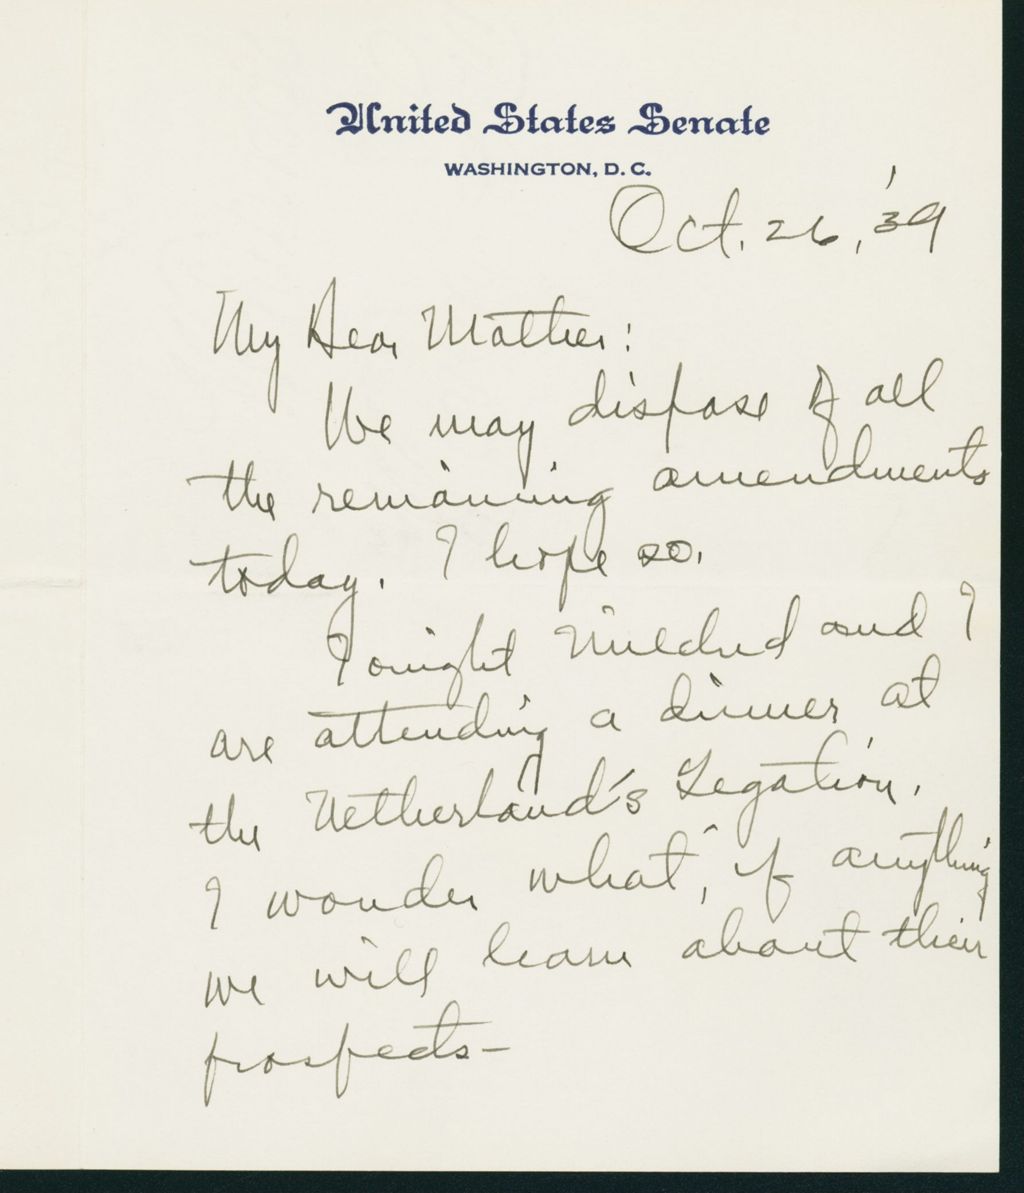 United States Senate
WASHINGTON, D. C.
Oct. 26, '39
My Dear Mother:
We may dispose of all
the remaining amendments
today. I hope so.
Tonight Mildred and I
are attending a dinner at
the Netherland's Legation.
I wonder what, if anything
we will learn about their
prospects—